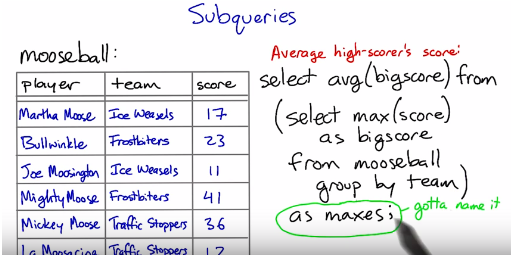 Subqueries
mooseball:
player team score
Martha Moose Ice Weasels 17
Bullwinkle Frostbiters 23
Joe Moosington Ice Weasels 11
Mighty Moose Frostbiters 41
Mickey Moose Traffic Stoppers 36
Traffic Stoppers
Average high-scorer's score:
select avg(bigscore) from
(select max(score)
as bigscore
from mooseball
group by team)
as maxes;
gotta name it